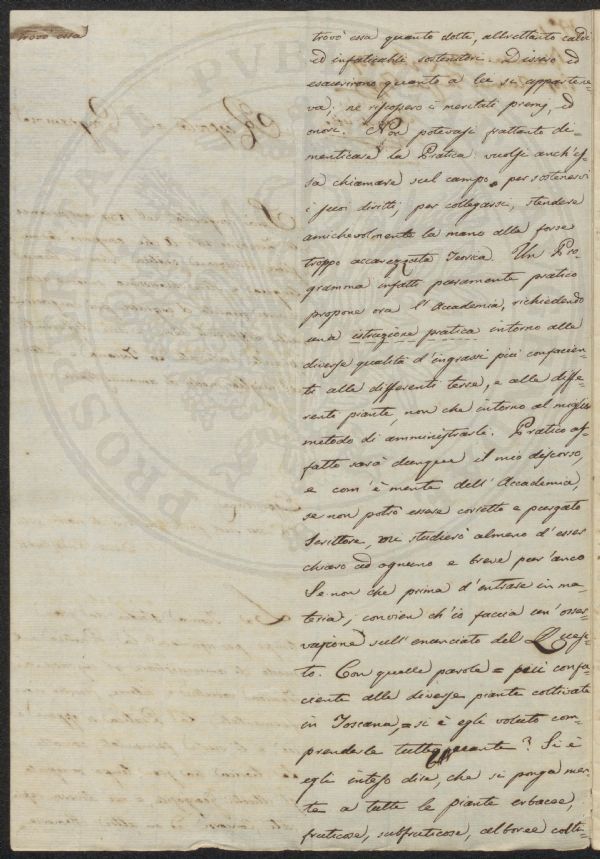 trovò essa
trovò essa quanto dotti, altrettanto caldi
ed infaticabili sostenitori. Dissero ed
esaurirono quanto a lei si appartene-
va; ne riscossero i meritati premj, ed
onori. Non potevasi frattanto di-
menticare la Pratica vuolsi anch'es-
sa chiamare sul campo per sostenervi
i suoi diritti, per collegarsi, stendere
amichevolmente la mano alla forse
troppo accarezzata Teorica. Un Pro-
gramma infatti puramente pratico
propone ora l'Accademia, richiedendo
una istruzione pratica intorno alle
diverse qualità d'ingrassi più confacien-
ti alle differenti terre, e alle diffe-
renti piante, non che intorno al miglior
metodo di amministrarli. Pratico af-
fatto sarà dunque il mio discorso,
e com'è mente dell'Accademia,
se non potrò essere corretto e purgato
Scrittore, mi studierò almeno d'esser
chiaro ad ognuno e breve per'anco
Se non che prima d'entrare in ma-
teria, convien ch'io faccia un'osser-
vazione sull'enunciato del Quesi-
to. Con quelle parole = più confa-
ciente alle diverse piante coltivate
in Toscana, = si è egli voluto com-
prenderle tutte quante? Si è
egli inteso dire, che si ponga men-
te a tutte le piante erbacee,
fruticose, suffruticose, alboree colti-
PROSPERITATI PUBL